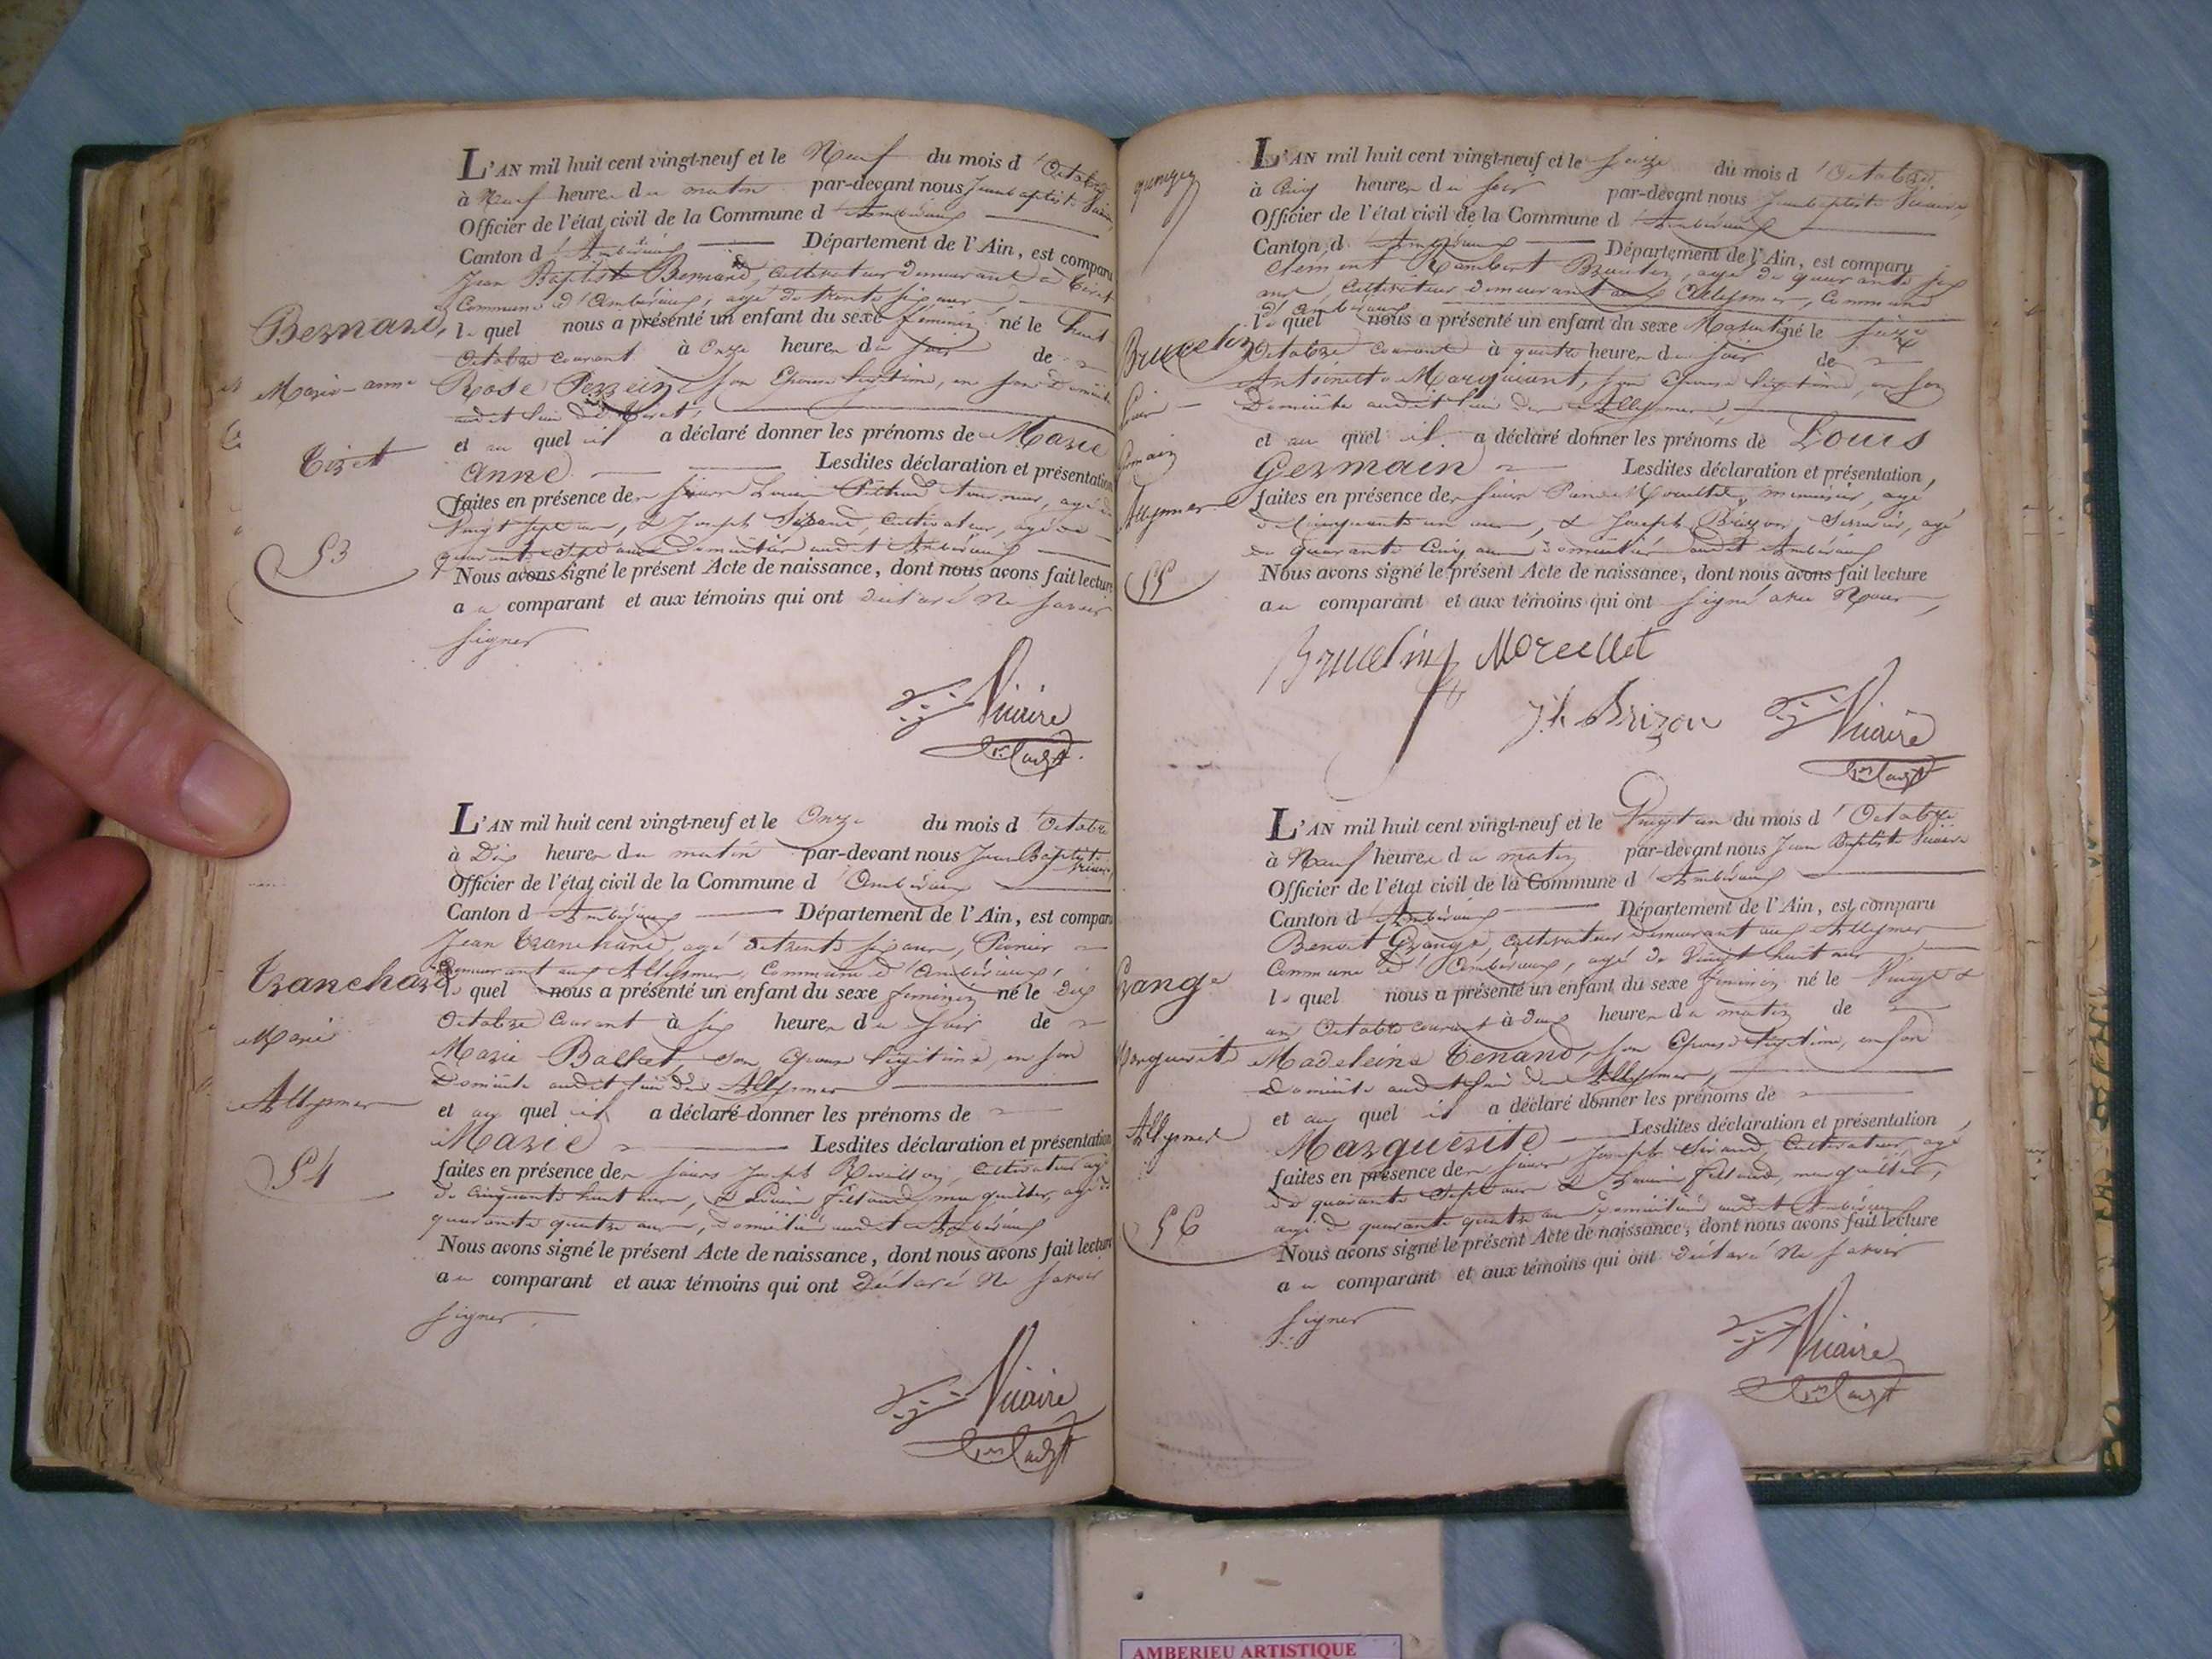 L'AN mil huit cent vingt-neuf et le Neuf du mois d'Octobre
à Neuf heures du matin par-devant nous Jean baptiste Vicaire
Officier de l'état civil de la Commune d'Ambérieux
Canton d'Ambérieux Département de l'Ain, est comparu
Jean Baptiste Bernard, cultivateur demeurant à Tiret
Commune d'Ambérieux, agé de trente six ans
Bernard, lequel nous a présenté un enfant du sexe feminin né le huit
octobre courant à Onze heures du soir de
Marie-anne
Rose Perrein son Epouse légitime, en son Domicile
audit lieu de Tiret,
et auquel il a déclaré donner les prénoms de Marie
Tiret
Anne Lesdites déclaration et présentation
faites en présence des sieurs tourneur, agé de
Vingt sept ans, & Joseph cultivateur, agé de
quarante sept ans domiciliés audit Ambérieux
53
Nous avons signé le présent Acte de naissance, dont nous avons fait lecture
au comparant et aux témoins qui ont déclaré ne savoir
signer
Vicaire
L'AN mil huit cent vingt-neuf et le Onze du mois d'Octobre
à Dix heures du matin par-devant nous Jean Baptiste Vicaire
Officier de l'état civil de la Commune d'Ambérieux
Canton d'Ambérieux Département de l'Ain, est comparu
Jean Tranchard, agé de trente six ans,
demeurant aux Allymes, Commune d'Ambérieux,
Tranchard lequel nous a présenté un enfant du sexe feminin né le dix
Octobre courant à six heures du soir de
Marie
Marie Ballet, son Epouse légitime, en son
Domicile audit lieu des Allymes
Allymes
et auquel il a déclaré donner les prénoms de
Marie Lesdites déclaration et présentation
54
faites en présence des sieurs Joseph cultivateur agé
de cinquante huit ans, & Louis marguiller, agé de
quarante quatre ans, domiciliés audit Ambérieux
Nous avons signé le présent Acte de naissance, dont nous avons fait lecture
au comparant et aux témoins qui ont Déclaré ne savoir
signer
Vicaire
L'AN mil huit cent vingt-neuf et le seize du mois d'Octobre
à Cinq heures du soir par-devant nous Jean baptiste Vicaire
Officier de l'état civil de la Commune d'Ambérieux
Canton d'Ambérieux Département de l'Ain, est comparu
Clément Rambert Brucelin, agé de quarante six
ans, cultivateur demeurant aux Allymes, Commune
d'Ambérieux
lequel nous a présenté un enfant du sexe Masculin né le seize
Brucelin
Octobre courant à quatre heures du soir de
Antoinette son Epouse légitime, en son
Louis
Domicile audit lieu des Allymes
et auquel il a déclaré donner les prénoms de Louis
Germain
Germain Lesdites déclaration et présentation,
Allymes
faites en présence des sieurs menuisier, agé
de Cinquante un ans, & Joseph Brizon, Serrurier, agé
de quarante Cinq ans domiciliés audit Ambérieux
55
Nous avons signé le présent Acte de naissance, dont nous avons fait lecture
au comparant et aux témoins qui ont signé avec Nous,
Brucelin Morellet
Jh Brizon Vicaire
L'AN mil huit cent vingt-neuf et le Vingt un du mois d'Octobre
à Neuf heures du matin par-devant nous Jean Baptiste Vicaire
Officier de l'état civil de la Commune d'Ambérieux
Canton d'Ambérieux Département de l'Ain, est comparu
Benoit Grange, cultivateur demeurant aux Allymes
Commune d'Ambérieux, agé de Vingt huit ans
Grange
lequel nous a présenté un enfant du sexe féminin né le Vingt &
un Octobre courant à deux heures du matin de
Marguerite
Madeleine Tenand, son Epouse légitime, en son
Domicile audit lieu des Allymes,
et auquel il a déclaré donner les prénoms de
Allymes
Marguerite Lesdites déclaration et présentation,
faites en présence des sieurs Joseph cultivateur, agé
de quarante Sept ans & Louis marguiller,
agé de quarante quatre ans domiciliés audit Ambérieux
56
Nous avons signé le présent Acte de naissance, dont nous avons fait lecture
au comparant et aux témoins qui ont déclaré ne savoir
signer
Vicaire
AMBERIEU ARTISTIQUE